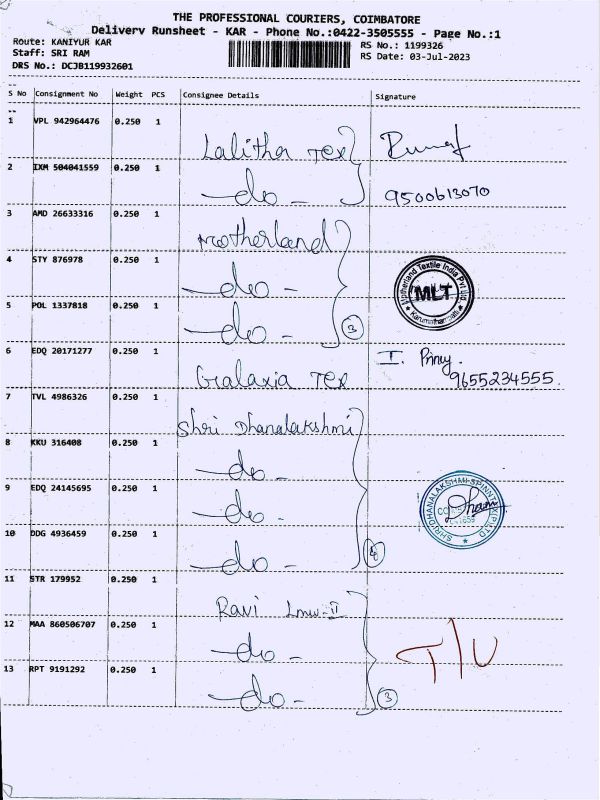 THE PROFESSIONAL COURIERS, COIMBATORE
Delivery Runsheet - KAR - Phone No.:0422-3505555 - Page No.:1
Route: KANIYUR KAR
RS No.: 1199326
Staff: SRI RAM
RS Date: 03-Jul-2023
DRS No.: DCJB119932601
S No Consignment No Weight PCS Consignee Details Signature
1 VPL 942964476 0.250 1 Lalitha Tex
2 IXM 504041559 0.250 1 -do- 9500613070
3 AMD 26633316 0.250 1 Motherland
4 STY 876978 0.250 1 -do- Motherland Textile India Pvt Ltd. MLT
5 POL 1337818 0.250 1 -do- 3
6 EDQ 20171277 0.250 1 Galaxia Tex I. 9655234555.
7 TVL 4986326 0.250 1 Shri Dhanalakshmi
8 KKU 316408 0.250 1 -do-
9 EDQ 24145695 0.250 1 -do- SHRI DHANALAKSHMI SPINNTEX (P) LTD
10 DDG 4936459 0.250 1 -do- 4
11 STR 179952 0.250 1 Ravi Lmw-II
12 MAA 860506707 0.250 1 -do- T/U
13 RPT 9191292 0.250 1 -do- 3